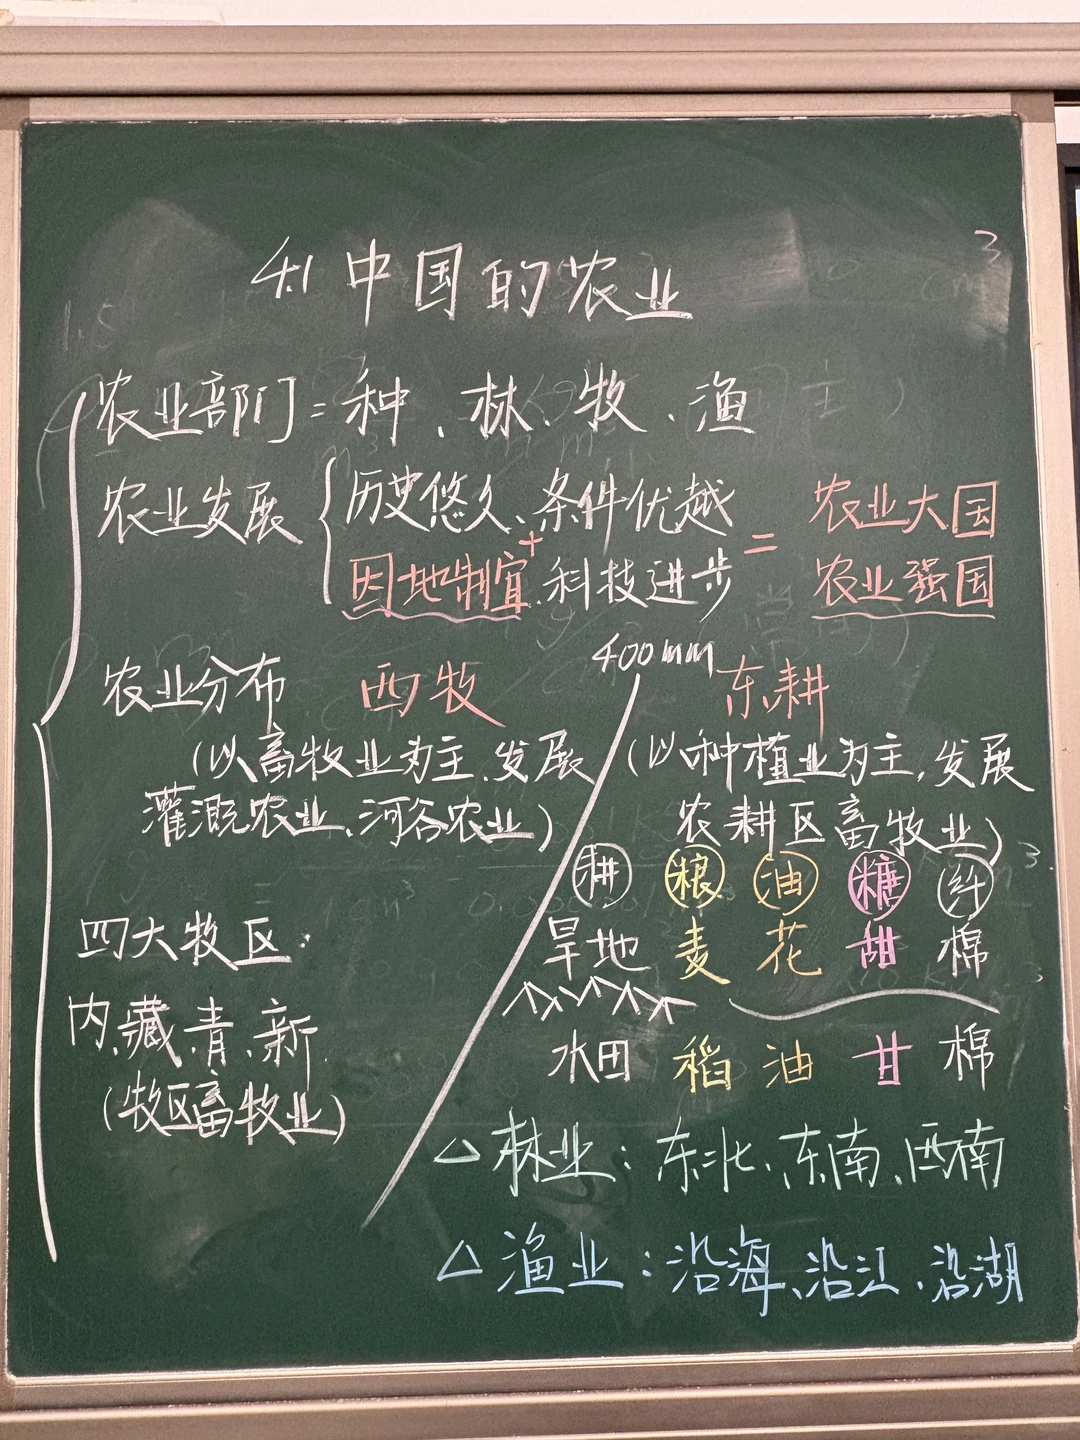 4.1 中国的农业
农业部门:种、林、牧、渔
农业发展 历史悠久、条件优越
因地制宜+科技进步 = 农业大国
农业强国
400mm
农业分布 西牧 东耕
(以畜牧业为主,发展 (以种植业为主,发展
灌溉农业、河谷农业) 农耕区畜牧业)
耕 粮 油 糖 纤
四大牧区: 旱地 麦 花 甜 棉
内、藏、青、新 水田 稻 油 甘 棉
(牧区畜牧业)
△林业:东北、东南、西南
△渔业:沿海、沿江、沿湖